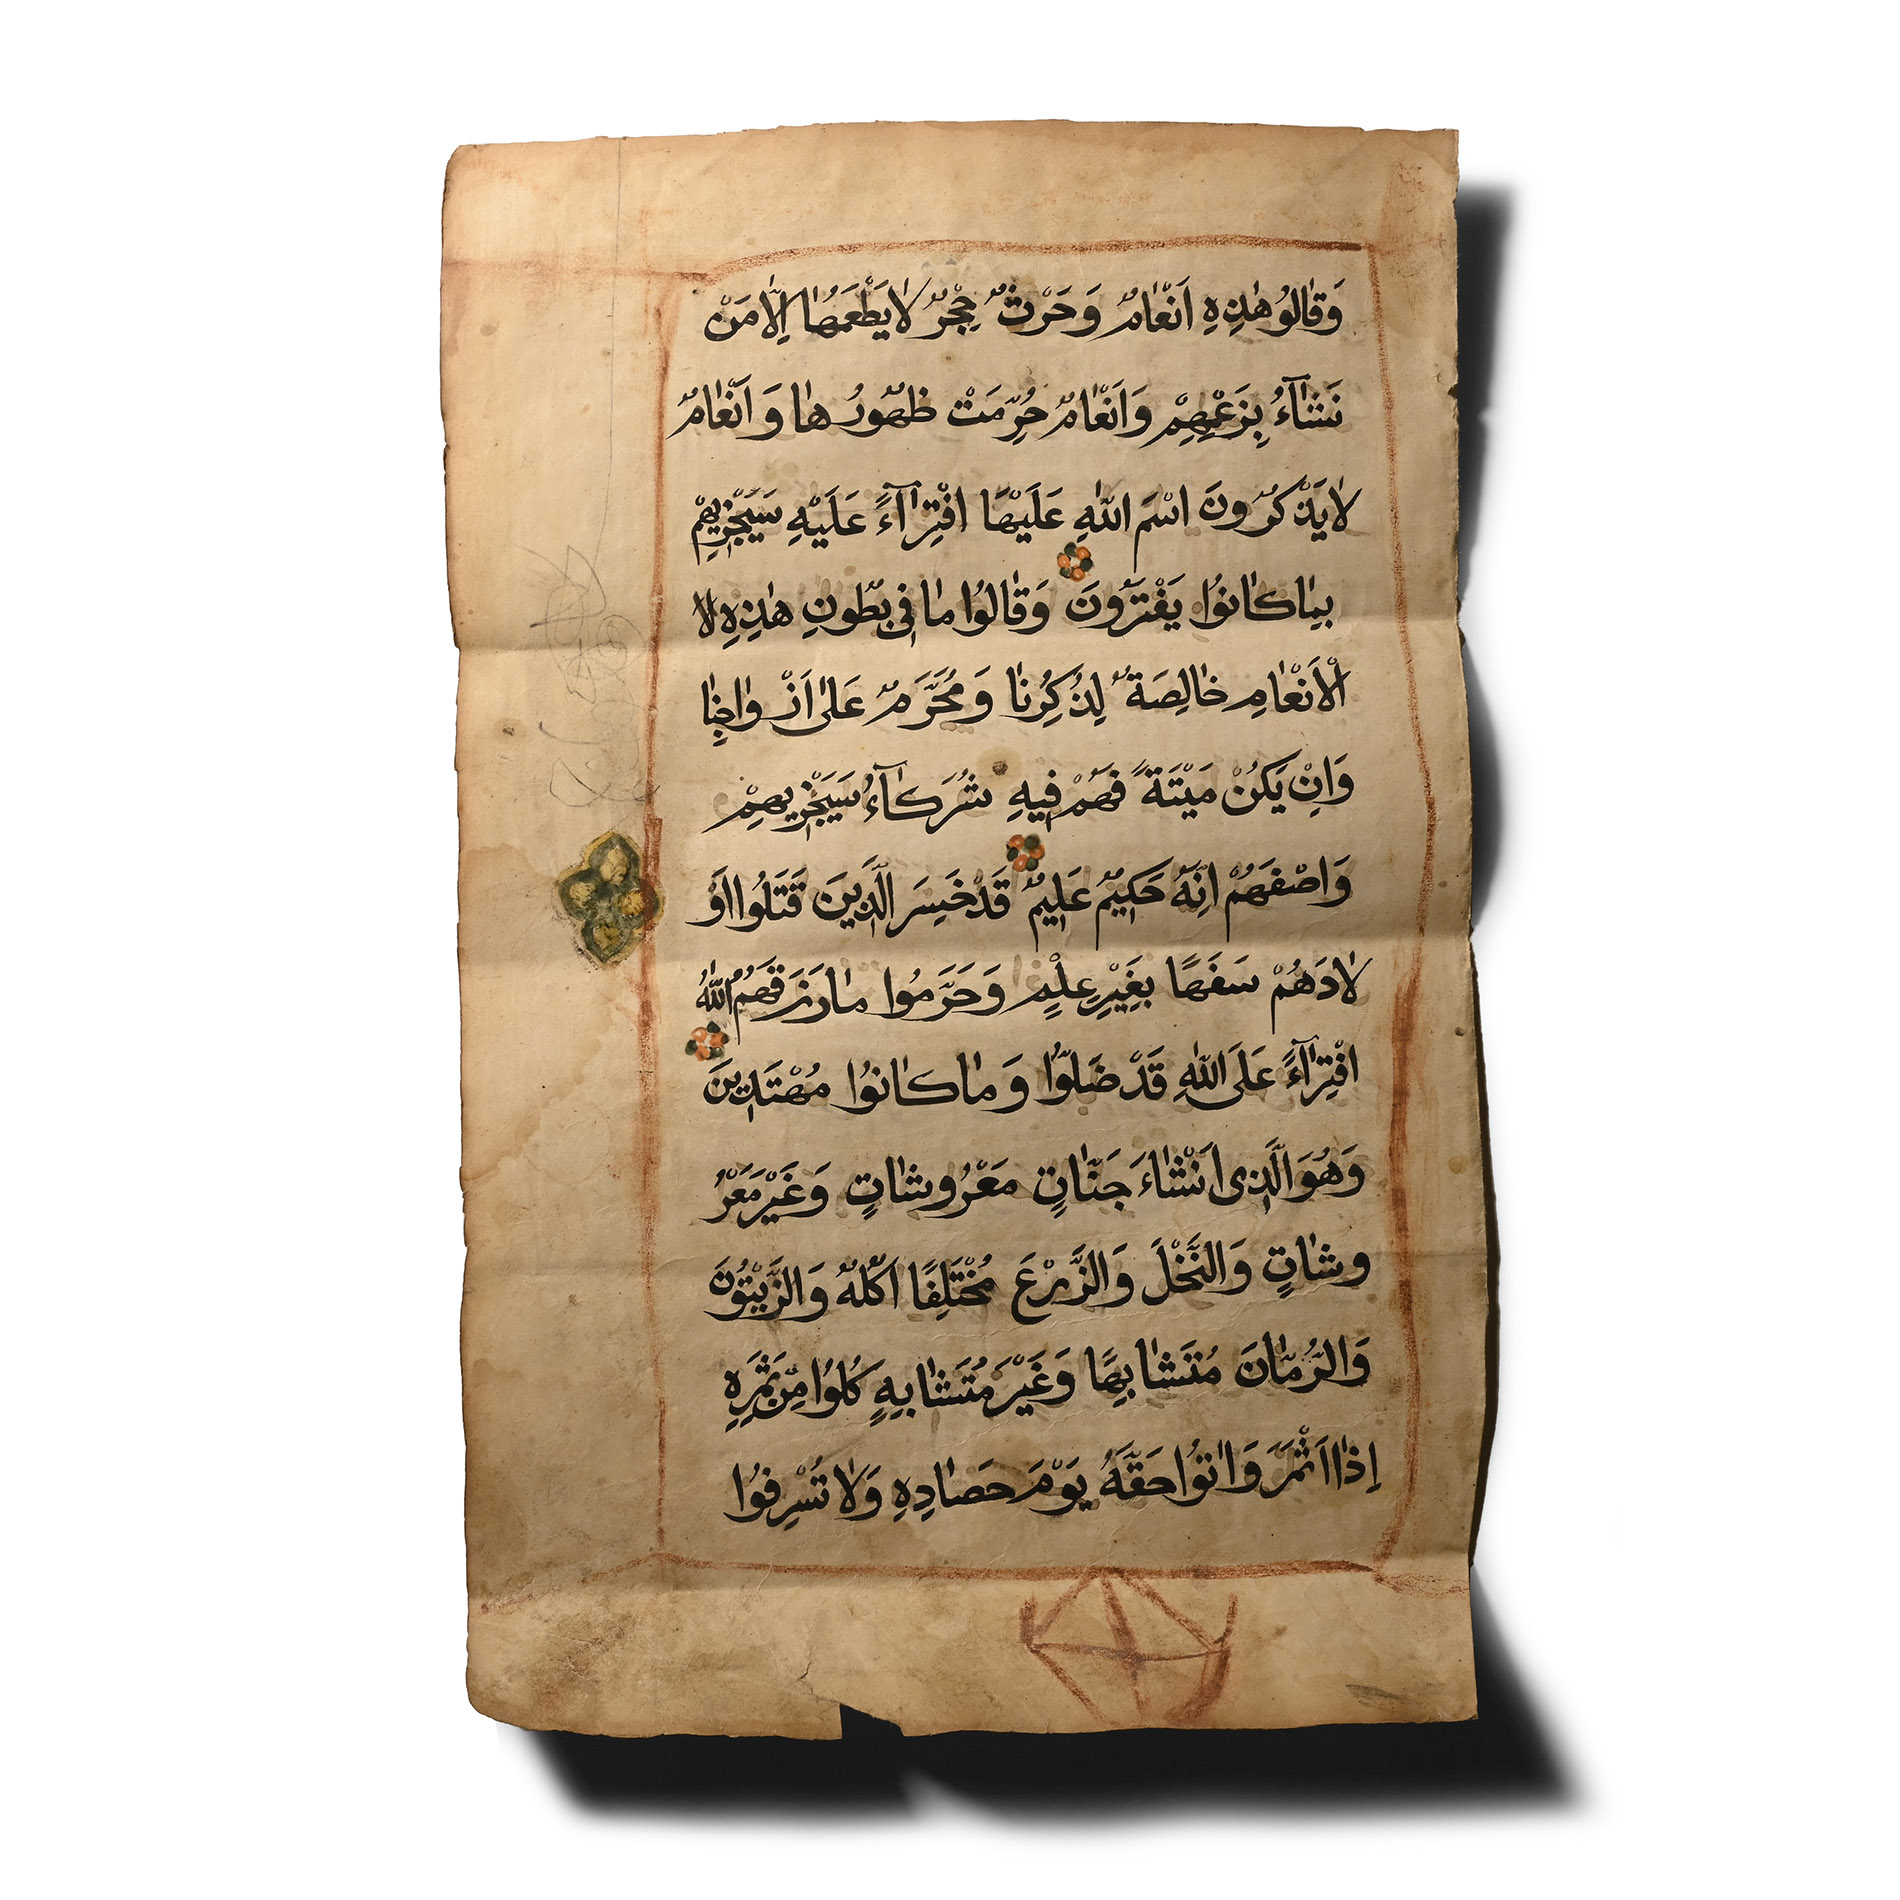 وَقٰالُو هٰذِهِ اَنْعٰامٌ وَحَرْثٌ حِجْرٌ لٰا يَطْعَمُهٰا اِلّٰا مَنْ
نَشٰآءُ بِزَعْمِهِمْ وَاَنْعٰامٌ حُرِّمَتْ ظُهُورُهٰا وَاَنْعٰامٌ
لٰا يَذْكُرُونَ اسْمَ اللّٰهِ عَلَيْهَا افْتِرٰآءً عَلَيْهِ سَيَجْزِيهِمْ
بِمٰا كٰانُوا يَفْتَرُونَ وَقٰالُوا مٰا فِى بُطُونِ هٰذِهِ لا
الْاَنْعٰامِ خٰالِصَةٌ لِذُكُرِنٰا وَمُحَرَّمٌ عَلٰى اَزْوٰاجِنٰا
وَاِنْ يَكُنْ مَيْتَةً فَهُمْ فِيهِ شُرَكٰآءُ سَيَجْزِيهِمْ
وَاصْفَهُمْ اِنَّهُ حَكِيمٌ عَلِيمٌ قَدْ خَسِرَ الَّذِينَ قَتَلُوا اَوْ
لٰادَهُمْ سَفَهًا بِغَيْرِ عِلْمٍ وَحَرَّمُوا مٰا رَزَقَهُمُ اللّٰهُ
افْتِرٰآءً عَلَى اللّٰهِ قَدْ ضَلُّوا وَمٰا كٰانُوا مُهْتَدِينَ
وَهُوَ الَّذِى اَنْشٰاءَ جَنّٰاتٍ مَعْرُوشٰاتٍ وَغَيْرَ مَعْرُ
وشٰاتٍ وَالنَّخْلَ وَالزَّرْعَ مُخْتَلِفًا اُكُلُهُ وَالزَّيْتُونَ
وَالرُّمّٰانَ مُتَشٰابِهًا وَغَيْرَ مُتَشٰابِهٍ كُلُوا مِنْ ثَمَرِهِ
اِذٰا اَثْمَرَ وَاٰتُوا حَقَّهُ يَوْمَ حَصٰادِهِ وَلٰا تُسْرِفُوا